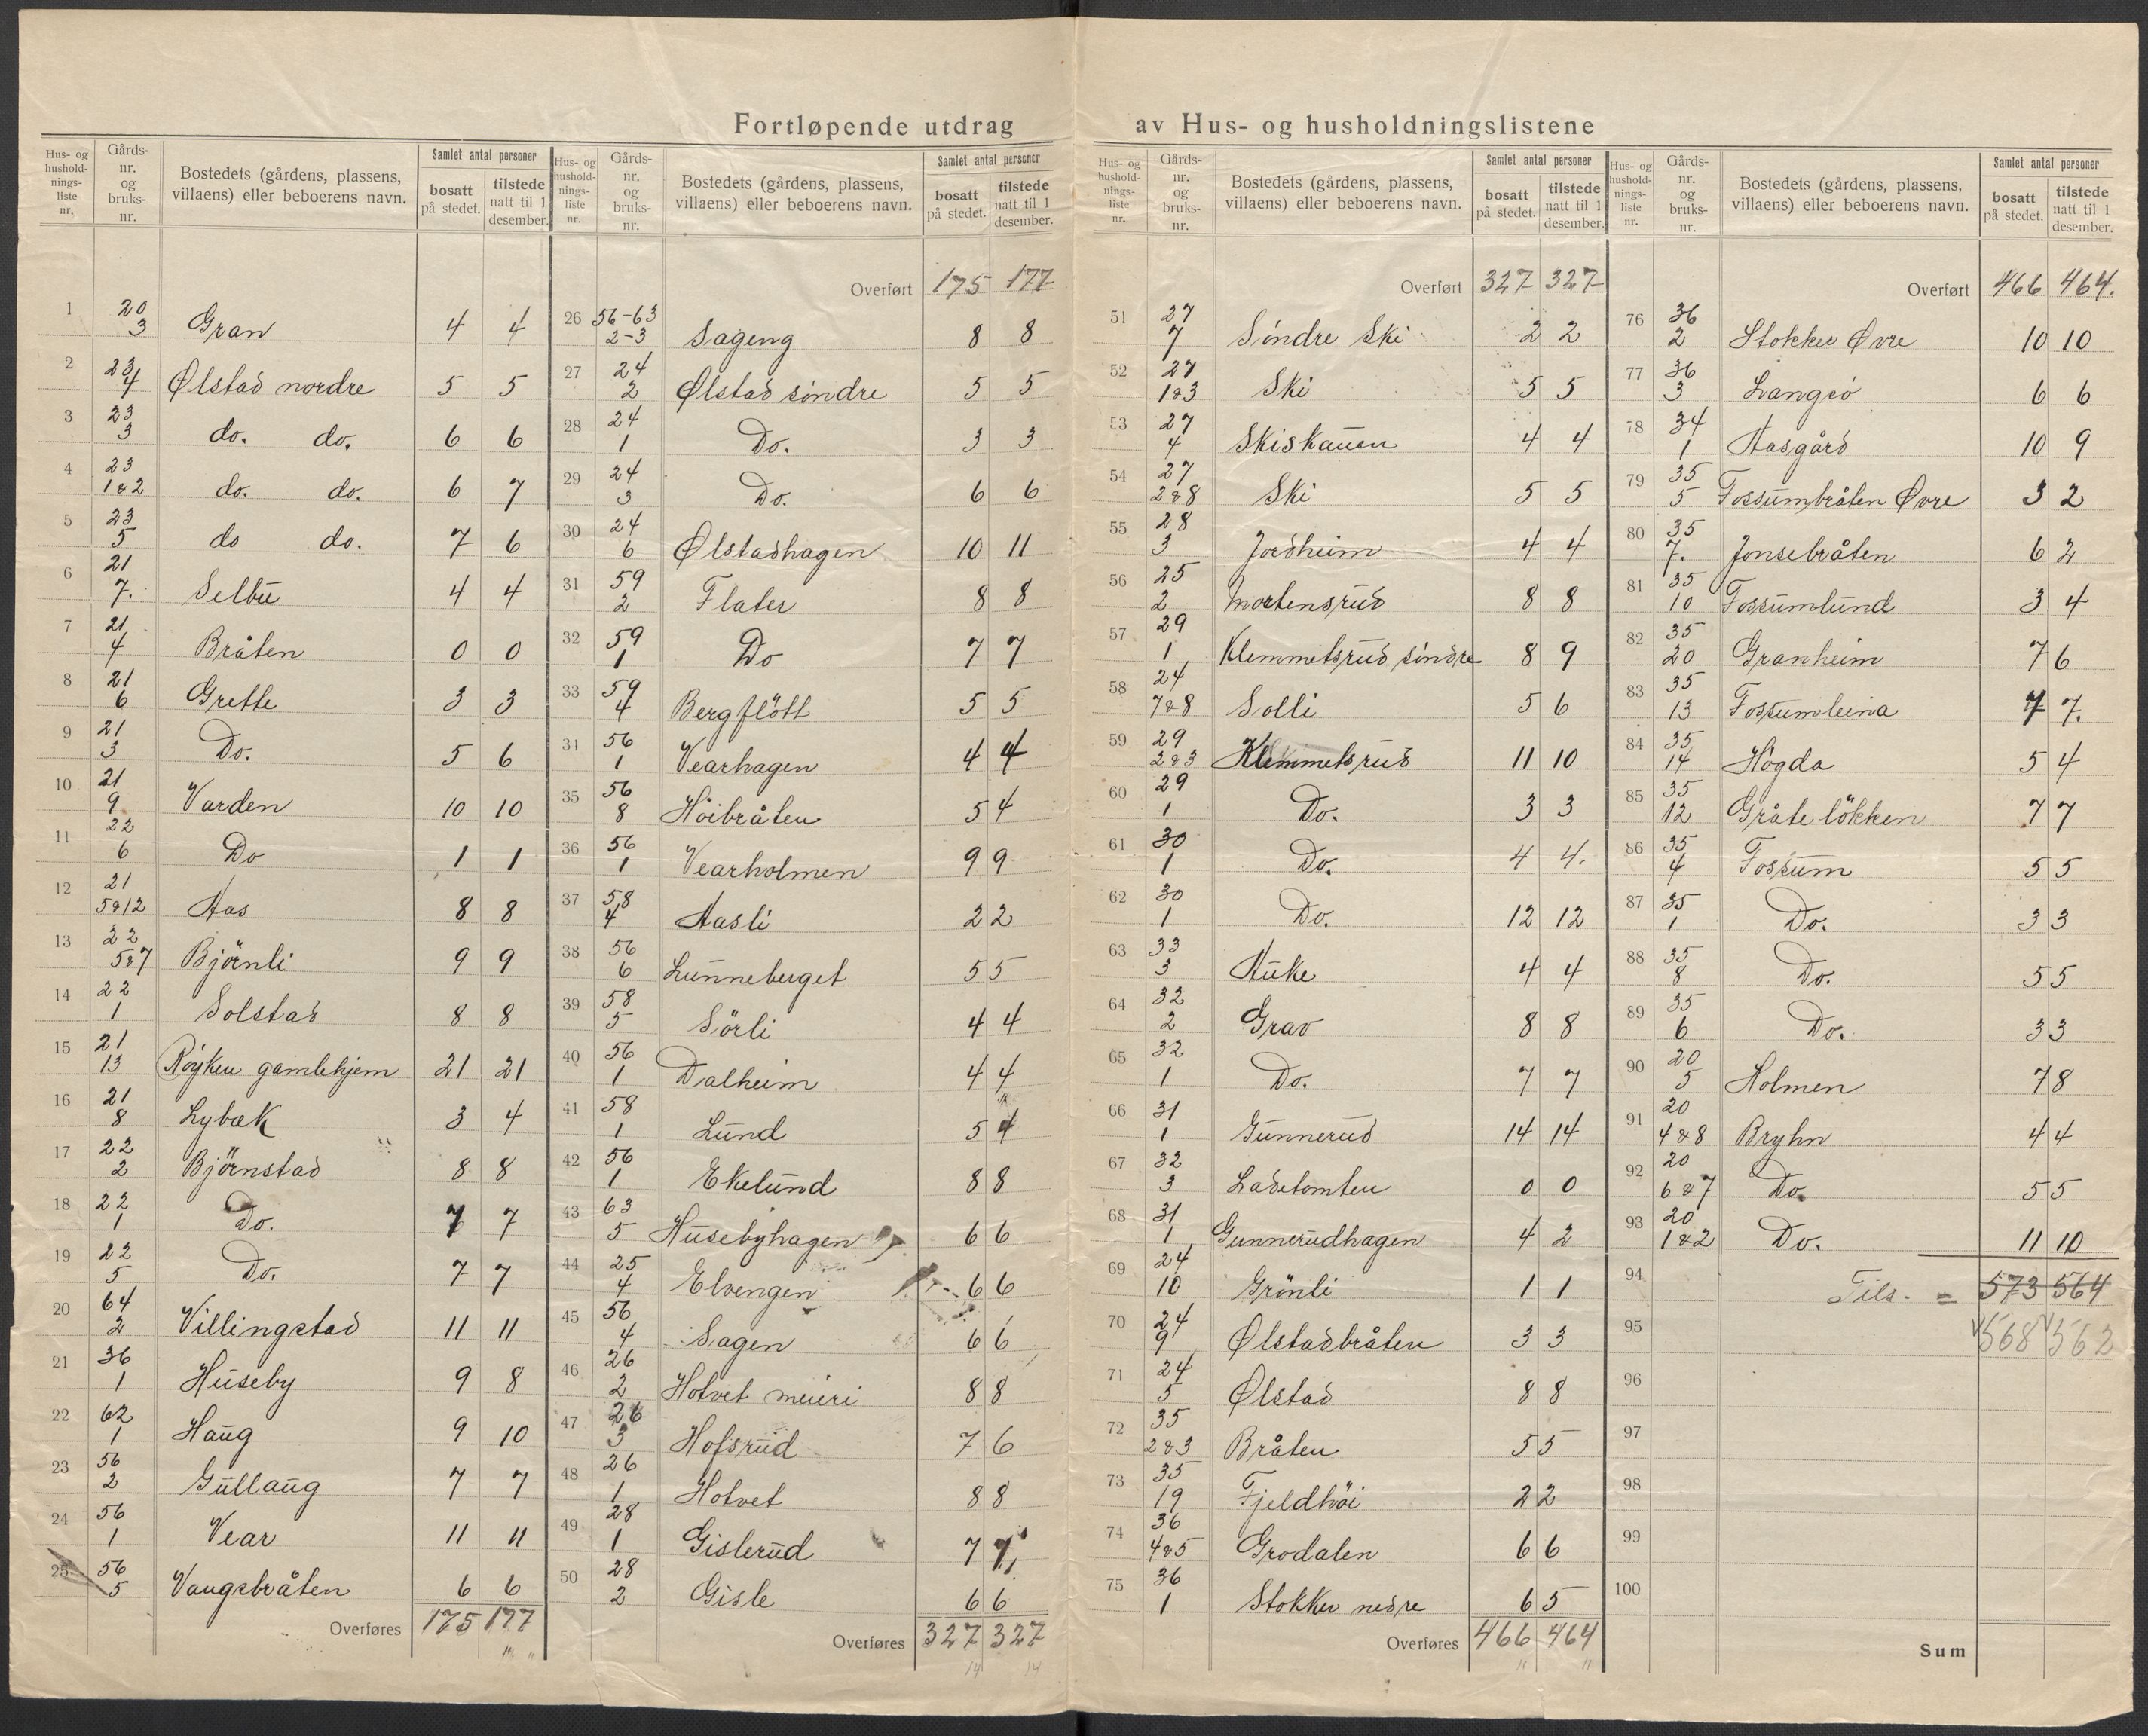 Fortløpende utdrag av Hus- og husholdningslistene
Hus- og husholdningsliste nr. | Gårds-nr. og bruks-nr. | Bostedets (gårdens, plassens, villaens) eller beboerens navn. | Samlet antal personer | bosatt på stedet. | tilstede natt til 1 desember.
1 20 3 Gran 4 4
2 23 4 Ølstad nordre 5 5
3 23 3 do. do. 6 6
4 23 1&2 do. do. 6 7
5 23 5 do do. 7 6
6 21 7. Selbu 4 4
7 21 4 Bråten 0 0
8 21 6 Grette 3 3
9 21 3 Do. 5 6
10 21 9 Varden 10 10
11 22 6 Do 1 1
12 21 5&12 Aas 8 8
13 22 5&7 Björnli 9 9
14 22 1 Solstad 8 8
15 21 13 Røyken gamlehjem 21 21
16 21 8 Lybæk 3 4
17 22 2 Björnstad 8 8
18 22 1 Do. 7 7
19 22 5 Do. 7 7
20 64 2 Villingstad 11 11
21 36 1 Huseby 9 8
22 62 1 Haug 9 10
23 56 2 Gullaug 7 7
24 56 1 Vear 11 11
25 56 5 Vaugsbråten 6 6
Overføres 175 177
Hus- og husholdningsliste nr. | Gårds-nr. og bruks-nr. | Bostedets (gårdens, plassens, villaens) eller beboerens navn. | Samlet antal personer | bosatt på stedet. | tilstede natt til 1 desember.
Overført 175 177
26 56-63 2-3 Sageng 8 8
27 24 2 Ølstad söndre 5 5
28 24 1 Do. 3 3
29 24 3 Do. 6 6
30 24 6 Ølstadhagen 10 11
31 59 2 Flater 8 8
32 59 1 Do 7 7
33 59 4 Bergflött 5 5
31 56 1 Vearhagen 4 4
35 56 8 Höibråten 5 4
36 56 1 Vearholmen 9 9
37 58 4 Aasli 2 2
38 56 6 Lunneberget 5 5
39 58 5 Sörli 4 4
40 56 1 Dalheim 4 4
41 58 1 Lund 5 4
42 56 1 Ekelund 8 8
43 63 5 Husebyhagen 6 6
44 25 4 Elvengen 6 6
45 56 4 Sagen 6 6
46 26 2 Hotvet meieri 8 8
47 26 3 Hofsrud 7 6
48 26 1 Hotvet 8 8
49 28 1 Gislerud 7 7
50 28 2 Gisle 6 6
Overføres 327 327
14 14
Hus- og husholdningsliste nr. | Gårds-nr. og bruks-nr. | Bostedets (gårdens, plassens, villaens) eller beboerens navn. | Samlet antal personer | bosatt på stedet. | tilstede natt til 1 desember.
Overført 327 327
51 27 7 Söndre Ski 2 2
52 27 1&3 Ski 5 5
53 27 4 Skiskauen 4 4
54 27 2&8 Ski 5 5
55 28 3 Jordheim 4 4
56 25 2 Mortensrud 8 8
57 29 1 Klemmetsrud söndre 8 9
58 24 7&8 Solli 5 6
59 29 2&3 Klemmetsrud 11 10
60 29 1 Do. 3 3
61 30 1 Do. 4 4.
62 30 1 Do. 12 12
63 33 3 Auke 4 4
64 32 2 Grav 8 8
65 32 1 Do. 7 7
66 31 1 Gunnerud 14 14
67 32 3 Ladetomten 0 0
68 31 1 Gunnerudhagen 4 2
69 24 10 Grönli 1 1
70 24 9 Ølstadbråten 3 3
71 24 5 Ølstad 8 8
72 35 2&3 Bråten 5 5
73 35 19 Fjeldhöi 2 2
74 36 4&5 Grodalen 6 6
75 36 1 Stokker nedre 6 5
Overføres 466 464
Hus- og husholdningsliste nr. | Gårds-nr. og bruks-nr. | Bostedets (gårdens, plassens, villaens) eller beboerens navn. | Samlet antal personer | bosatt på stedet. | tilstede natt til 1 desember.
Overført 466 464.
76 36 2 Stokker Øvre 10 10
77 36 3 Langsö 6 6
78 34 1 Aasgård 10 9
79 35 5 Fossumbråten Øvre 3 2
80 35 7. Jonsebråten 6 2
81 35 10 Fossumlund 3 4
82 35 20 Granheim 7 6
83 35 13 Fossumleina 7 7.
84 35 14 Högda 5 4
85 35 12 Gråtelökken 7 7
86 35 4 Fossum 5 5
87 35 1 Do. 3 3
88 35 8 Do. 5 5
89 35 6 Do. 3 3
90 20 5 Holmen 7 8
91 20 4&8 Bryhn 4 4
92 20 6&7 Do. 5 5
93 20 1&2 Do. 11 10
94 Tils. = 573 564
95 568 562
96
97
98
99
100
Sum